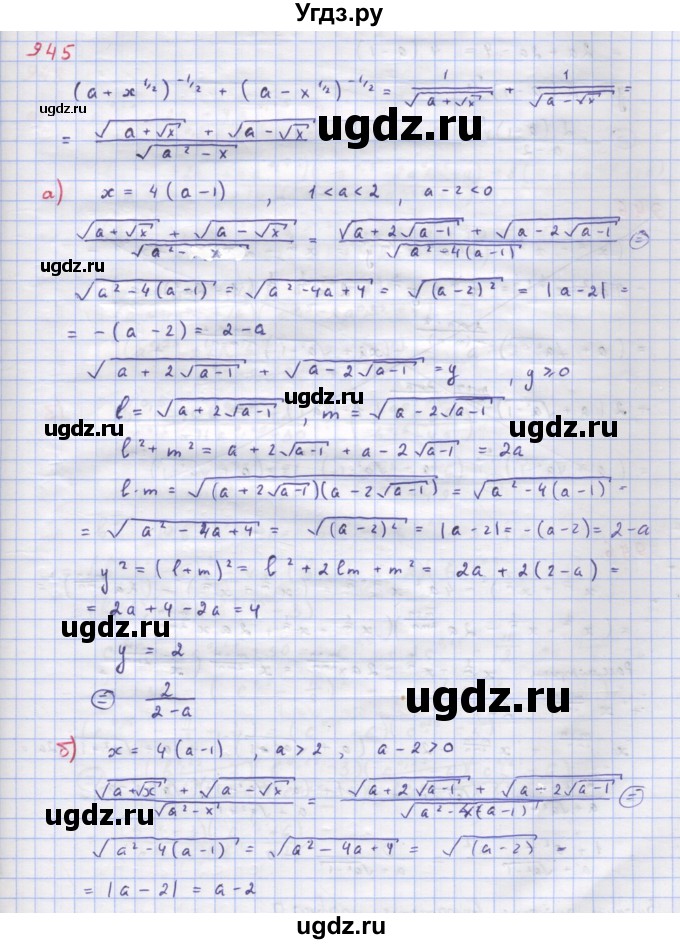 Угдз.ру
945
(a + x^{1/2})^{-1/2} + (a - x^{1/2})^{-1/2} = 1/√(a+√x) + 1/√(a-√x) =
= (√(a+√x) + √(a-√x)) / √(a² - x)
ugdz.ru
а) x = 4(a-1) , 1<a<2 , a-2<0
(√(a+√x) + √(a-√x)) / √(a² - x) = (√(a+2√(a-1)) + √(a-2√(a-1))) / √(a²-4(a-1)) ⊜
ugdz.ru
ugdz.ru
√(a²-4(a-1)) = √(a²-4a+4) = √((a-2)²) = |a-2| =
= -(a-2) = 2-a
√(a+2√(a-1)) + √(a-2√(a-1)) = y , y ≥ 0
ugdz.ru
l = √(a+2√(a-1)) , m = √(a-2√(a-1))
ugdz.ru
l² + m² = a + 2√(a-1) + a - 2√(a-1) = 2a
ugdz.ru
l·m = √((a+2√(a-1))(a-2√(a-1))) = √(a²-4(a-1)) =
= √(a²-4a+4) = √((a-2)²) = |a-2| = -(a-2) = 2-a
ugdz.ru
y² = (l+m)² = l² + 2lm + m² = 2a + 2(2-a) =
= 2a+4-2a = 4
ugdz.ru
y = 2
ugdz.ru
⊜ 2/(2-a)
ugdz.ru
б) x = 4(a-1) , a>2 , a-2>0
(√(a+√x) + √(a-√x)) / √(a²-x) = (√(a+2√(a-1)) + √(a-2√(a-1))) / √(a²-4(a-1)) ⊜
ugdz.ru
ugdz.ru
√(a²-4(a-1)) = √(a²-4a+4) = √((a-2)²) =
= |a-2| = a-2
ugdz.ru